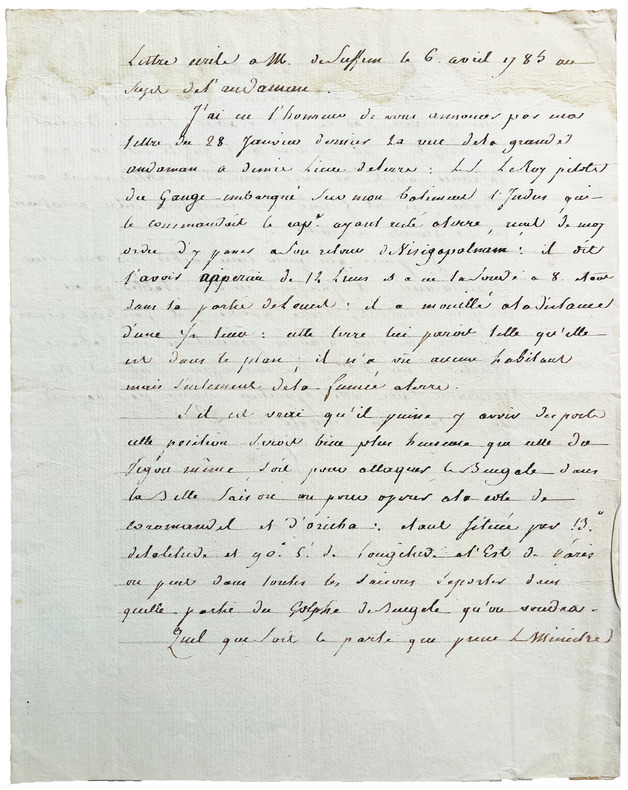 Lettre écrite a M. de Suffren le 6. avril 1785 au
sujet de l'andaman.
J'ai eu l'honneur de vous annoncer par ma
lettre du 28 Janvier dernier la vue dela grande
andaman a demie Lieue deterre : Le S. LeRoy pilote
du Gange embarqué sur mon batiment l'Indus que
le commandoit le cap.e ayant resté aterre, reçut de moy
ordre d'y passer a son retour de Visigapatnam : il dit
l'avoir apperçu de 12 Lieues
dans la partie del'ouest : il a mouillé ala distance
d'une Lieue : cette terre lui paroit telle qu'elle
est dans le plan ; il n'a vu aucun habitant
mais seulement dela fumée aterre.
S'il est vrai qu'il puisse y avoir des ports
cette position seroit bien plus heureuse que celle du
Pégou même soit pour attaquer le Bengale dans
la Belle saison ou pour opérer ala cote de
coromandel et d'oricha : etant située par 13.°
delatitude et 90.° 5' de longitude al'Est de Paris
on peut dans toutes les saisons seporter dans
quelle partie du Golphe deBengale qu'on voudra.
Quel que soit le parti que prenne le Ministre